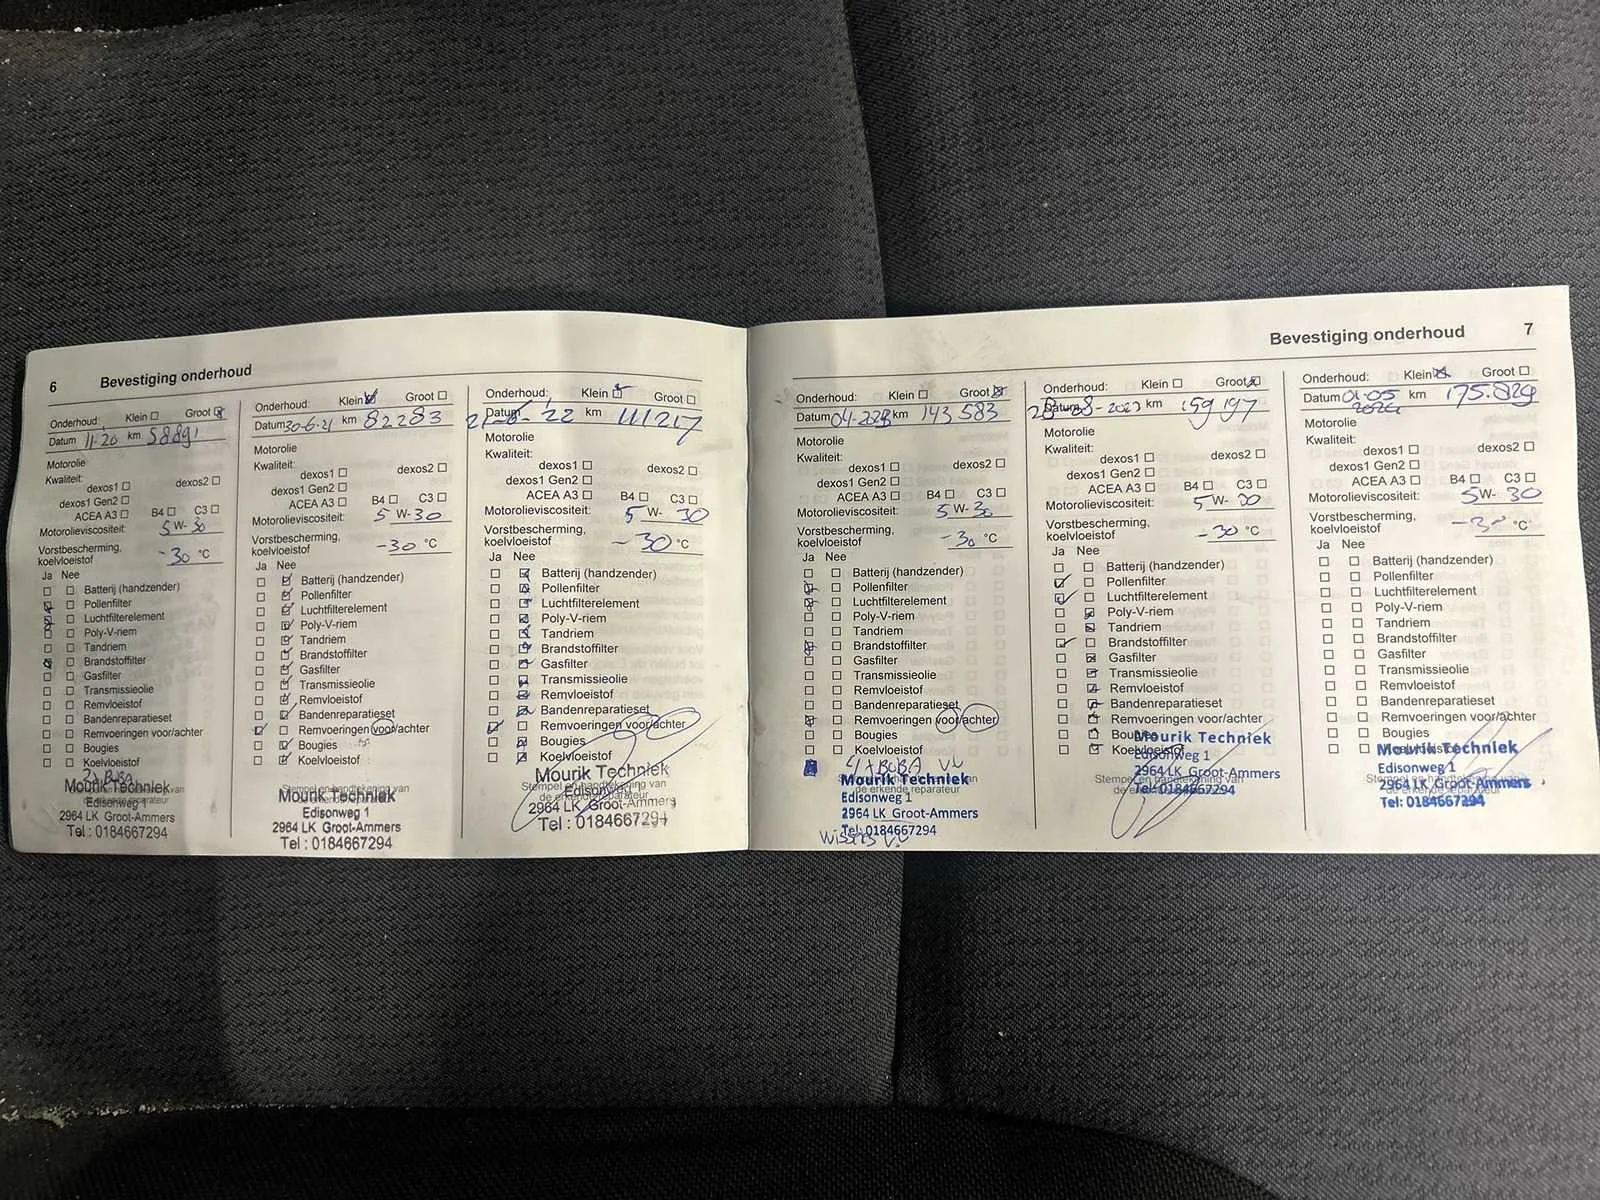 6 Bevestiging onderhoud
Onderhoud: Klein Groot
Datum 11-20 km 58891
Motorolie
Kwaliteit:
dexos1 dexos2
dexos1 Gen2
ACEA A3 B4 C3
Motorolieviscositeit: 5 W-30
Vorstbescherming,
koelvloeistof -30 °C
Ja Nee
Batterij (handzender)
Pollenfilter
Luchtfilterelement
Poly-V-riem
Tandriem
Brandstoffilter
Gasfilter
Transmissieolie
Remvloeistof
Bandenreparatieset
Remvoeringen voor/achter
Bougies
Koelvloeistof
Mourik Techniek
Edisonweg 1
2964 LK Groot-Ammers
Tel : 0184667294
Onderhoud: Klein Groot
Datum 30-6-21 km 82283
Motorolie
Kwaliteit:
dexos1 dexos2
dexos1 Gen2
ACEA A3 B4 C3
Motorolieviscositeit: 5 W-30
Vorstbescherming,
koelvloeistof -30 °C
Ja Nee
Batterij (handzender)
Pollenfilter
Luchtfilterelement
Poly-V-riem
Tandriem
Brandstoffilter
Gasfilter
Transmissieolie
Remvloeistof
Bandenreparatieset
Remvoeringen voor/achter
Bougies
Koelvloeistof
Mourik Techniek
Edisonweg 1
2964 LK Groot-Ammers
Tel : 0184667294
Onderhoud: Klein Groot
Datum 22 km 111217
Motorolie
Kwaliteit:
dexos1 dexos2
dexos1 Gen2
ACEA A3 B4 C3
Motorolieviscositeit: 5 W- 30
Vorstbescherming,
koelvloeistof -30 °C
Ja Nee
Batterij (handzender)
Pollenfilter
Luchtfilterelement
Poly-V-riem
Tandriem
Brandstoffilter
Gasfilter
Transmissieolie
Remvloeistof
Bandenreparatieset
Remvoeringen voor/achter
Bougies
Koelvloeistof
Mourik Techniek
Stempel en handtekening van
de erkende reparateur
Edisonweg 1
2964 LK Groot-Ammers
Tel : 0184667294
Bevestiging onderhoud 7
Onderhoud: Klein Groot
Datum km 143 583
Motorolie
Kwaliteit:
dexos1 dexos2
dexos1 Gen2
ACEA A3 B4 C3
Motorolieviscositeit: 5 W-30
Vorstbescherming,
koelvloeistof -30 °C
Ja Nee
Batterij (handzender)
Pollenfilter
Luchtfilterelement
Poly-V-riem
Tandriem
Brandstoffilter
Gasfilter
Transmissieolie
Remvloeistof
Bandenreparatieset
Remvoeringen voor/achter
Bougies
Koelvloeistof
Mourik Techniek
Edisonweg 1
2964 LK Groot-Ammers
Tel: 0184667294
Onderhoud: Klein Groot
Datum 8-2023 km 159197
Motorolie
Kwaliteit:
dexos1 dexos2
dexos1 Gen2
ACEA A3 B4 C3
Motorolieviscositeit: 5 W- 30
Vorstbescherming,
koelvloeistof -30 °C
Ja Nee
Batterij (handzender)
Pollenfilter
Luchtfilterelement
Poly-V-riem
Tandriem
Brandstoffilter
Gasfilter
Transmissieolie
Remvloeistof
Bandenreparatieset
Remvoeringen voor/achter
Bougies
Koelvloeistof
Mourik Techniek
Edisonweg 1
2964 LK Groot-Ammers
Tel: 0184667294
Onderhoud: Klein Groot
Datum 01-05 km 175.829
2024
Motorolie
Kwaliteit:
dexos1 dexos2
dexos1 Gen2
ACEA A3 B4 C3
Motorolieviscositeit: 5 W- 30
Vorstbescherming,
koelvloeistof -30 °C
Ja Nee
Batterij (handzender)
Pollenfilter
Luchtfilterelement
Poly-V-riem
Tandriem
Brandstoffilter
Gasfilter
Transmissieolie
Remvloeistof
Bandenreparatieset
Remvoeringen voor/achter
Bougies
Koelvloeistof
Mourik Techniek
Edisonweg 1
2964 LK Groot-Ammers
Tel: 0184667294